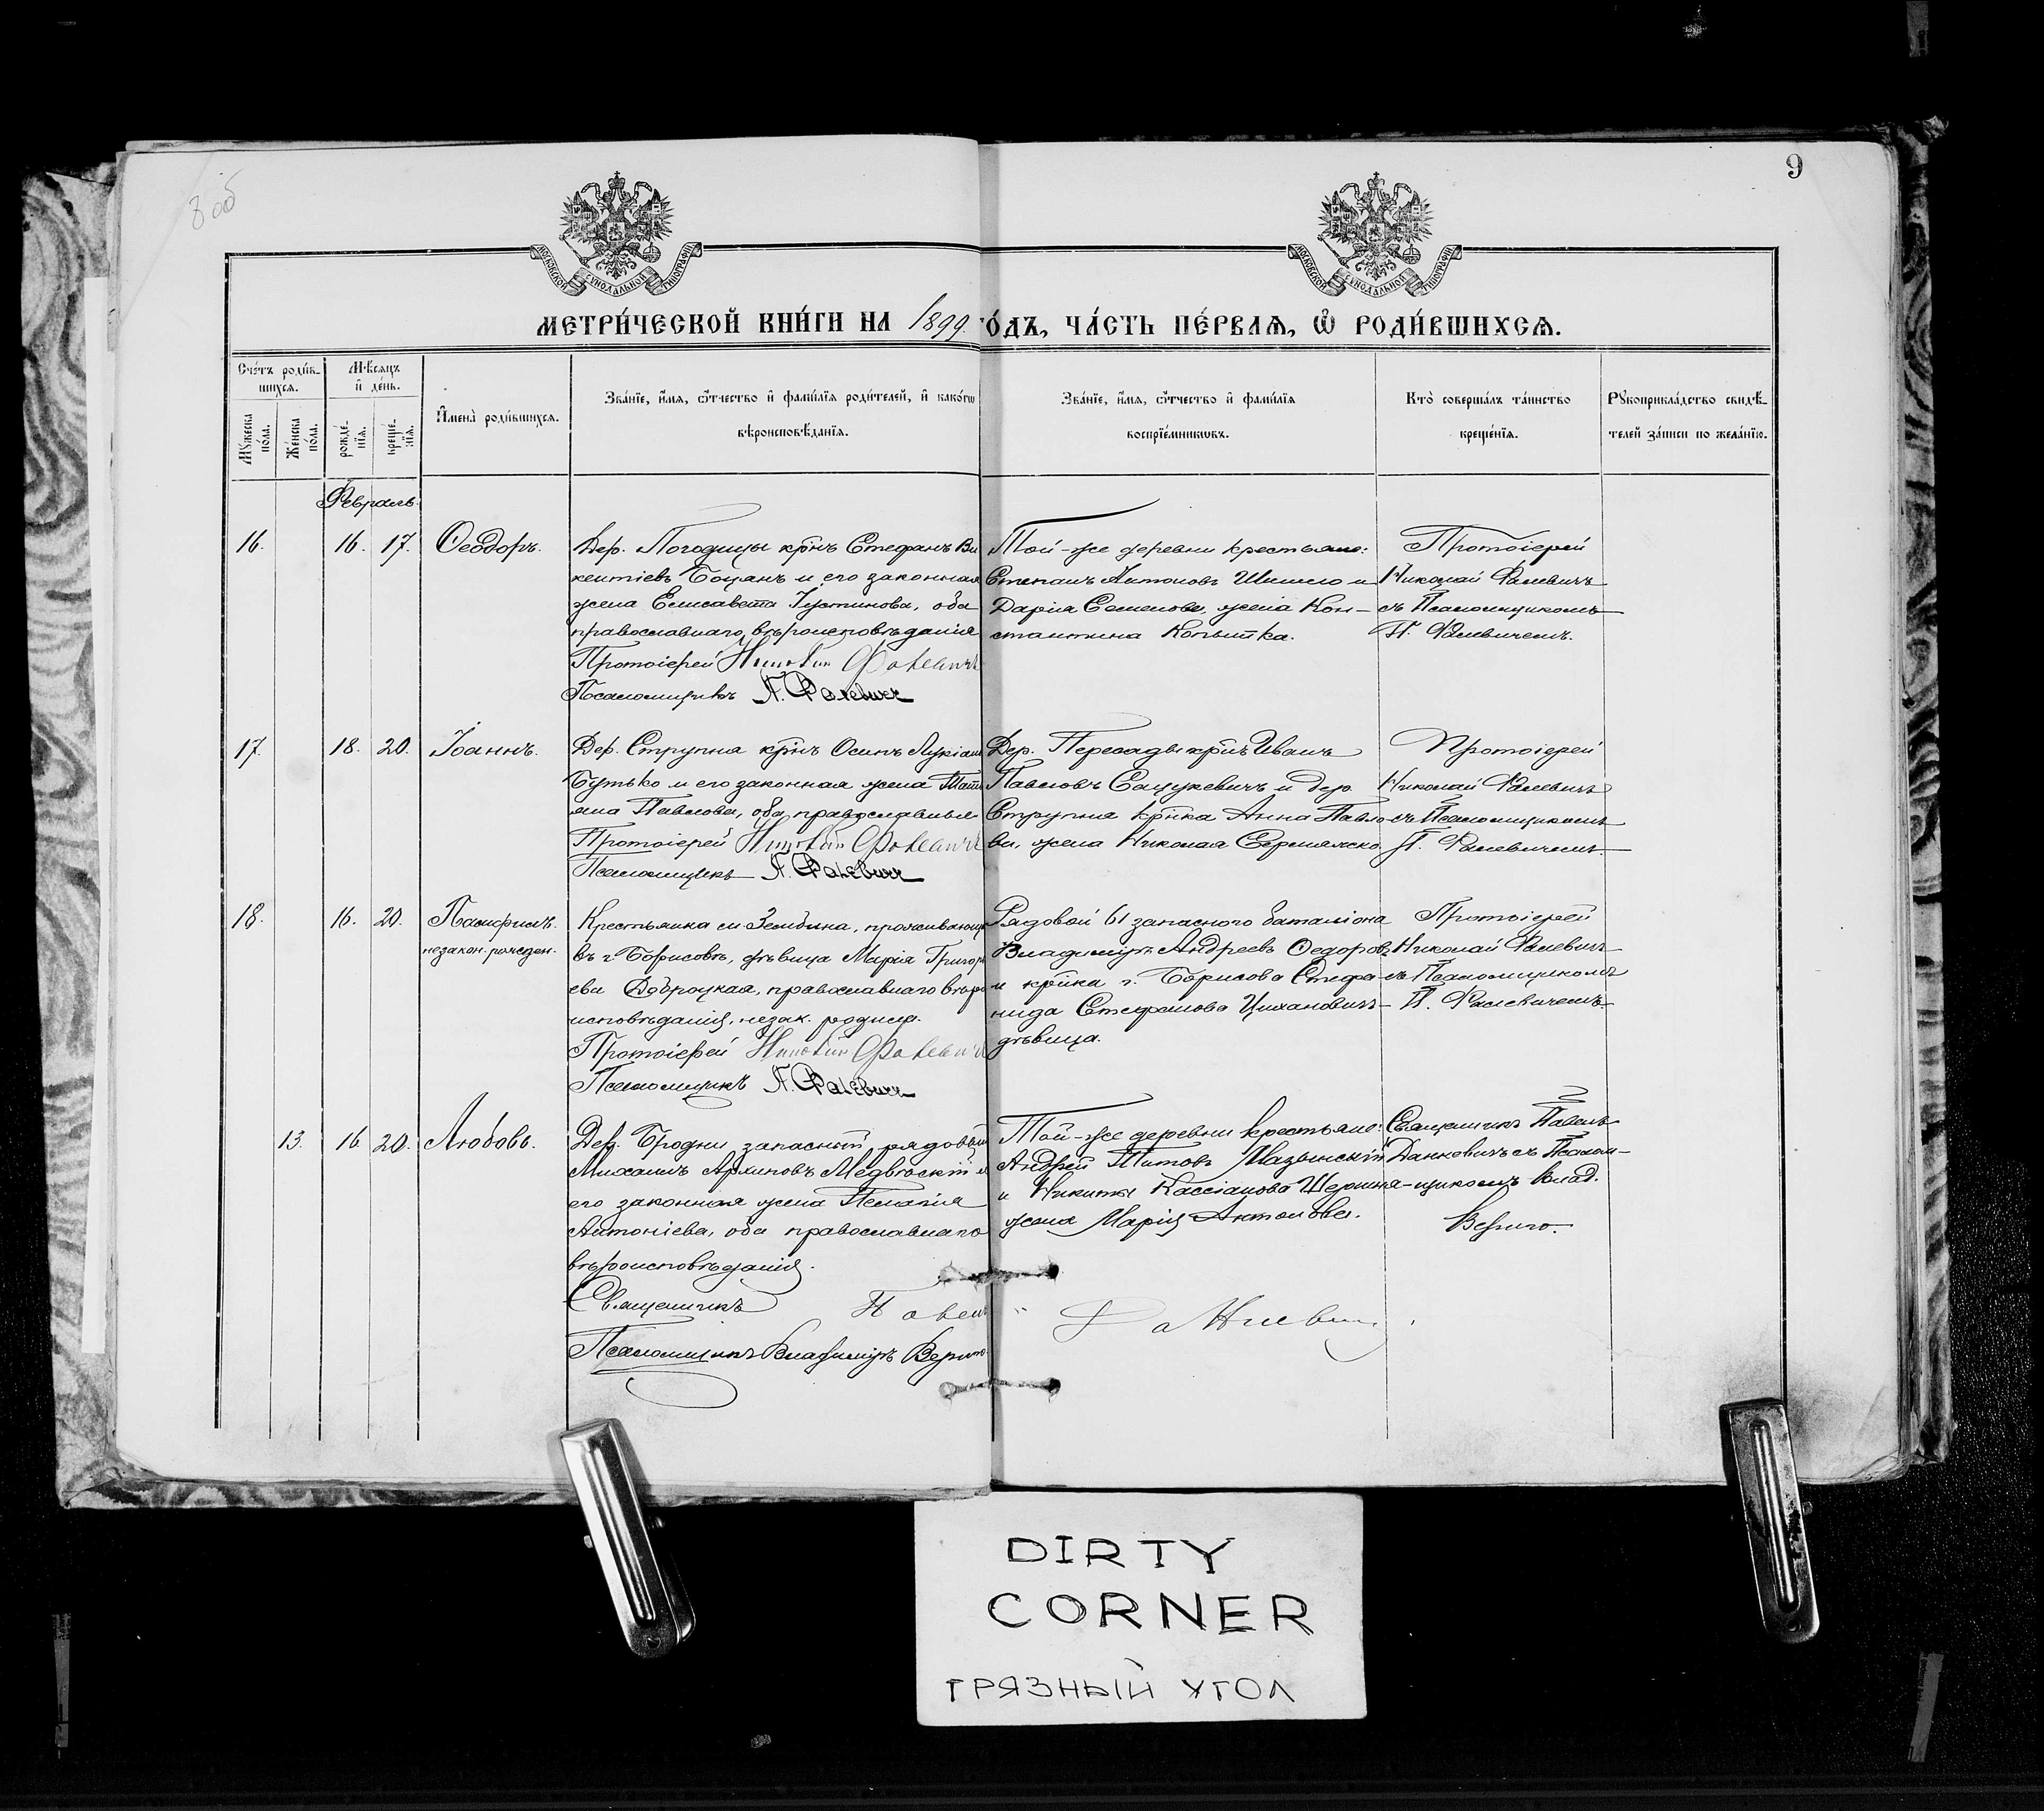 8 об
9
МОСКОВСКОЙ СУНОДАЛЬНОЙ ТИПОГРАФІИ
МОСКОВСКОЙ СУНОДАЛЬНОЙ ТИПОГРАФІИ
МЕТРИ́ЧЕСКОЙ КНИ́ГИ НА 1899 ГО́ДЪ, ЧА́СТЬ ПЕ́РВАѦ, Ѡ РОДИ́ВШИХСѦ.
Сче́тъ роди́вшихся.
Мѣ́сяцъ и де́нь.
Му́жеска по́ла.
Же́нска по́ла.
рожде́нїя.
креще́нїя.
Имена̀ роди́вшихся.
Зва́нїе, и́мя, ѻ́тчество и фами́лїя роди́телей, и како́гѡ
вѣроисповѣ́данїя.
Зва́нїе, и́мя, ѻ́тчество и фами́лїя
воспрїе́мникѡвъ.
Кто̀ соверша́лъ та́инство
креще́нїя.
Рукоприкла́дство свидѣ́-
телей за́писи по жела́нїю.
Февраль.
16. 16. 17. Ѳеодоръ.
Дер. Погодицы крнъ Стефанъ Ви
кентіевъ Боцанъ и его законная
жена Елисавета Іустинова, оба
православнаго вѣроисповѣданія
Протоіерей Николай Фалевичъ
Псаломщикъ П. Фалевичъ
Той-же деревни крестьяне:
Степанъ Антоновъ Шишло и
Дарія Семенова, жена Кон-
стантина Копытка.
Протоіерей
Николай Фалевичъ
съ Псаломщикомъ
П. Фалевичемъ.
17. 18. 20. Іоаннъ.
Дер. Струпня крнъ Осипъ Лукіан
Бутько и его законная жена Тать
яна Павлова, оба православные
Протоіерей Николай Фалевичъ
Псаломщикъ П. Фалевичъ
Дер. Пересады крнъ Иванъ
Павловъ Сацукевичъ и дер.
Струпня крнка Анна Павло
ва, жена Николая
Протоіерей
Николай Фалевичъ
съ Псаломщикомъ
П. Фалевичемъ.
18. 16. 20. Памфилъ.
незакон. рожден.
Крестьянка м. Зембина, проживающ
въ г. Борисовѣ, дѣвица Марія Григорь
ева Доброцкая, православнаго вѣро
исповѣданія, незак. родила.
Протоіерей Николай Фалевичъ
Псаломщикъ П. Фалевичъ
Рядовой 61 запасного баталіона
Владиміръ Андреевъ Ѳедоровъ
и крнка г. Борисова Стефа-
нида Стефанова Цихановичъ
дѣвица.
Протоіерей
Николай Фалевичъ
съ Псаломщикомъ
П. Фалевичемъ.
13. 16. 20. Любовь.
Дер. Бродни запасный рядовый
Михаилъ Архиповъ Медвѣскій и
его законная жена Пелагія
Антоніева, оба православнаго
вѣроисповѣданія.
Священникъ Павелъ Данкевичъ
Псаломщикъ Владиміръ Вериго.
Той-же деревни крестьяне:
Андрей Титовъ Мазынскій
и Никиты Кассіанова
жена Марія Антонова.
Священникъ Павелъ
Данкевичъ съ Псалом-
щикомъ Влад.
Вериго.
DIRTY
CORNER
ГРЯЗНЫЙ УГОЛ